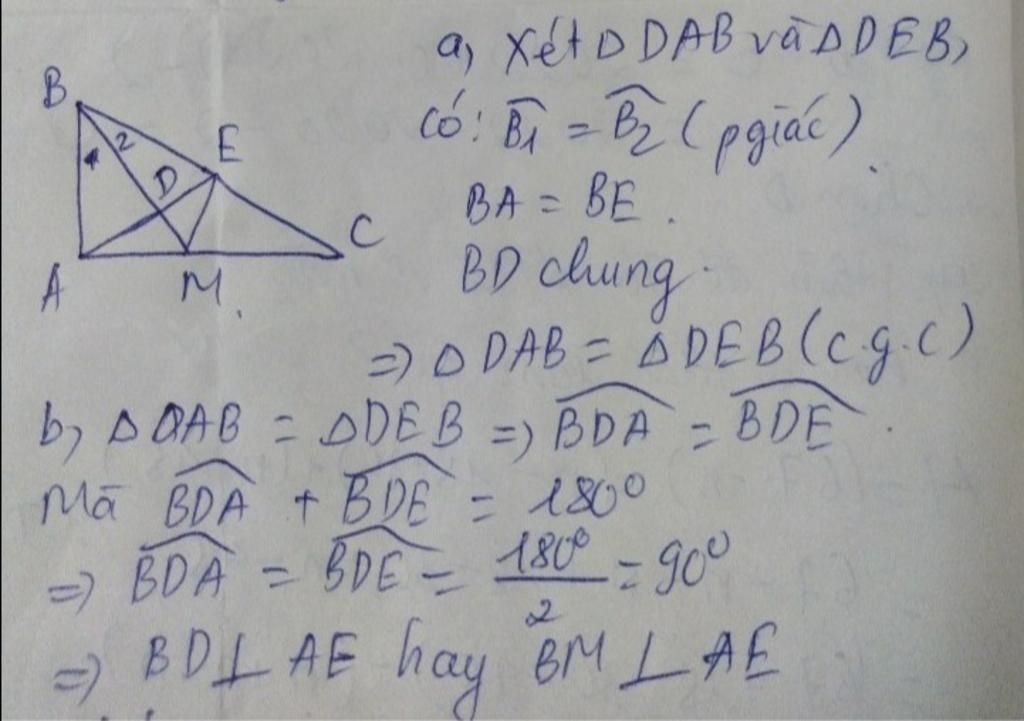 a, Xét Δ DAB và Δ DEB,
có: B̂1 = B̂2 (pgiác)
BA = BE.
BD chung.
=> Δ DAB = Δ DEB (c.g.c)
B
1
2
E
D
A
M
C
b, Δ DAB = Δ DEB => \widehat{BDA} = \widehat{BDE}.
Mà \widehat{BDA} + \widehat{BDE} = 180°
=> \widehat{BDA} = \widehat{BDE} = 180°/2 = 90°
=> BD ⊥ AE hay BM ⊥ AE